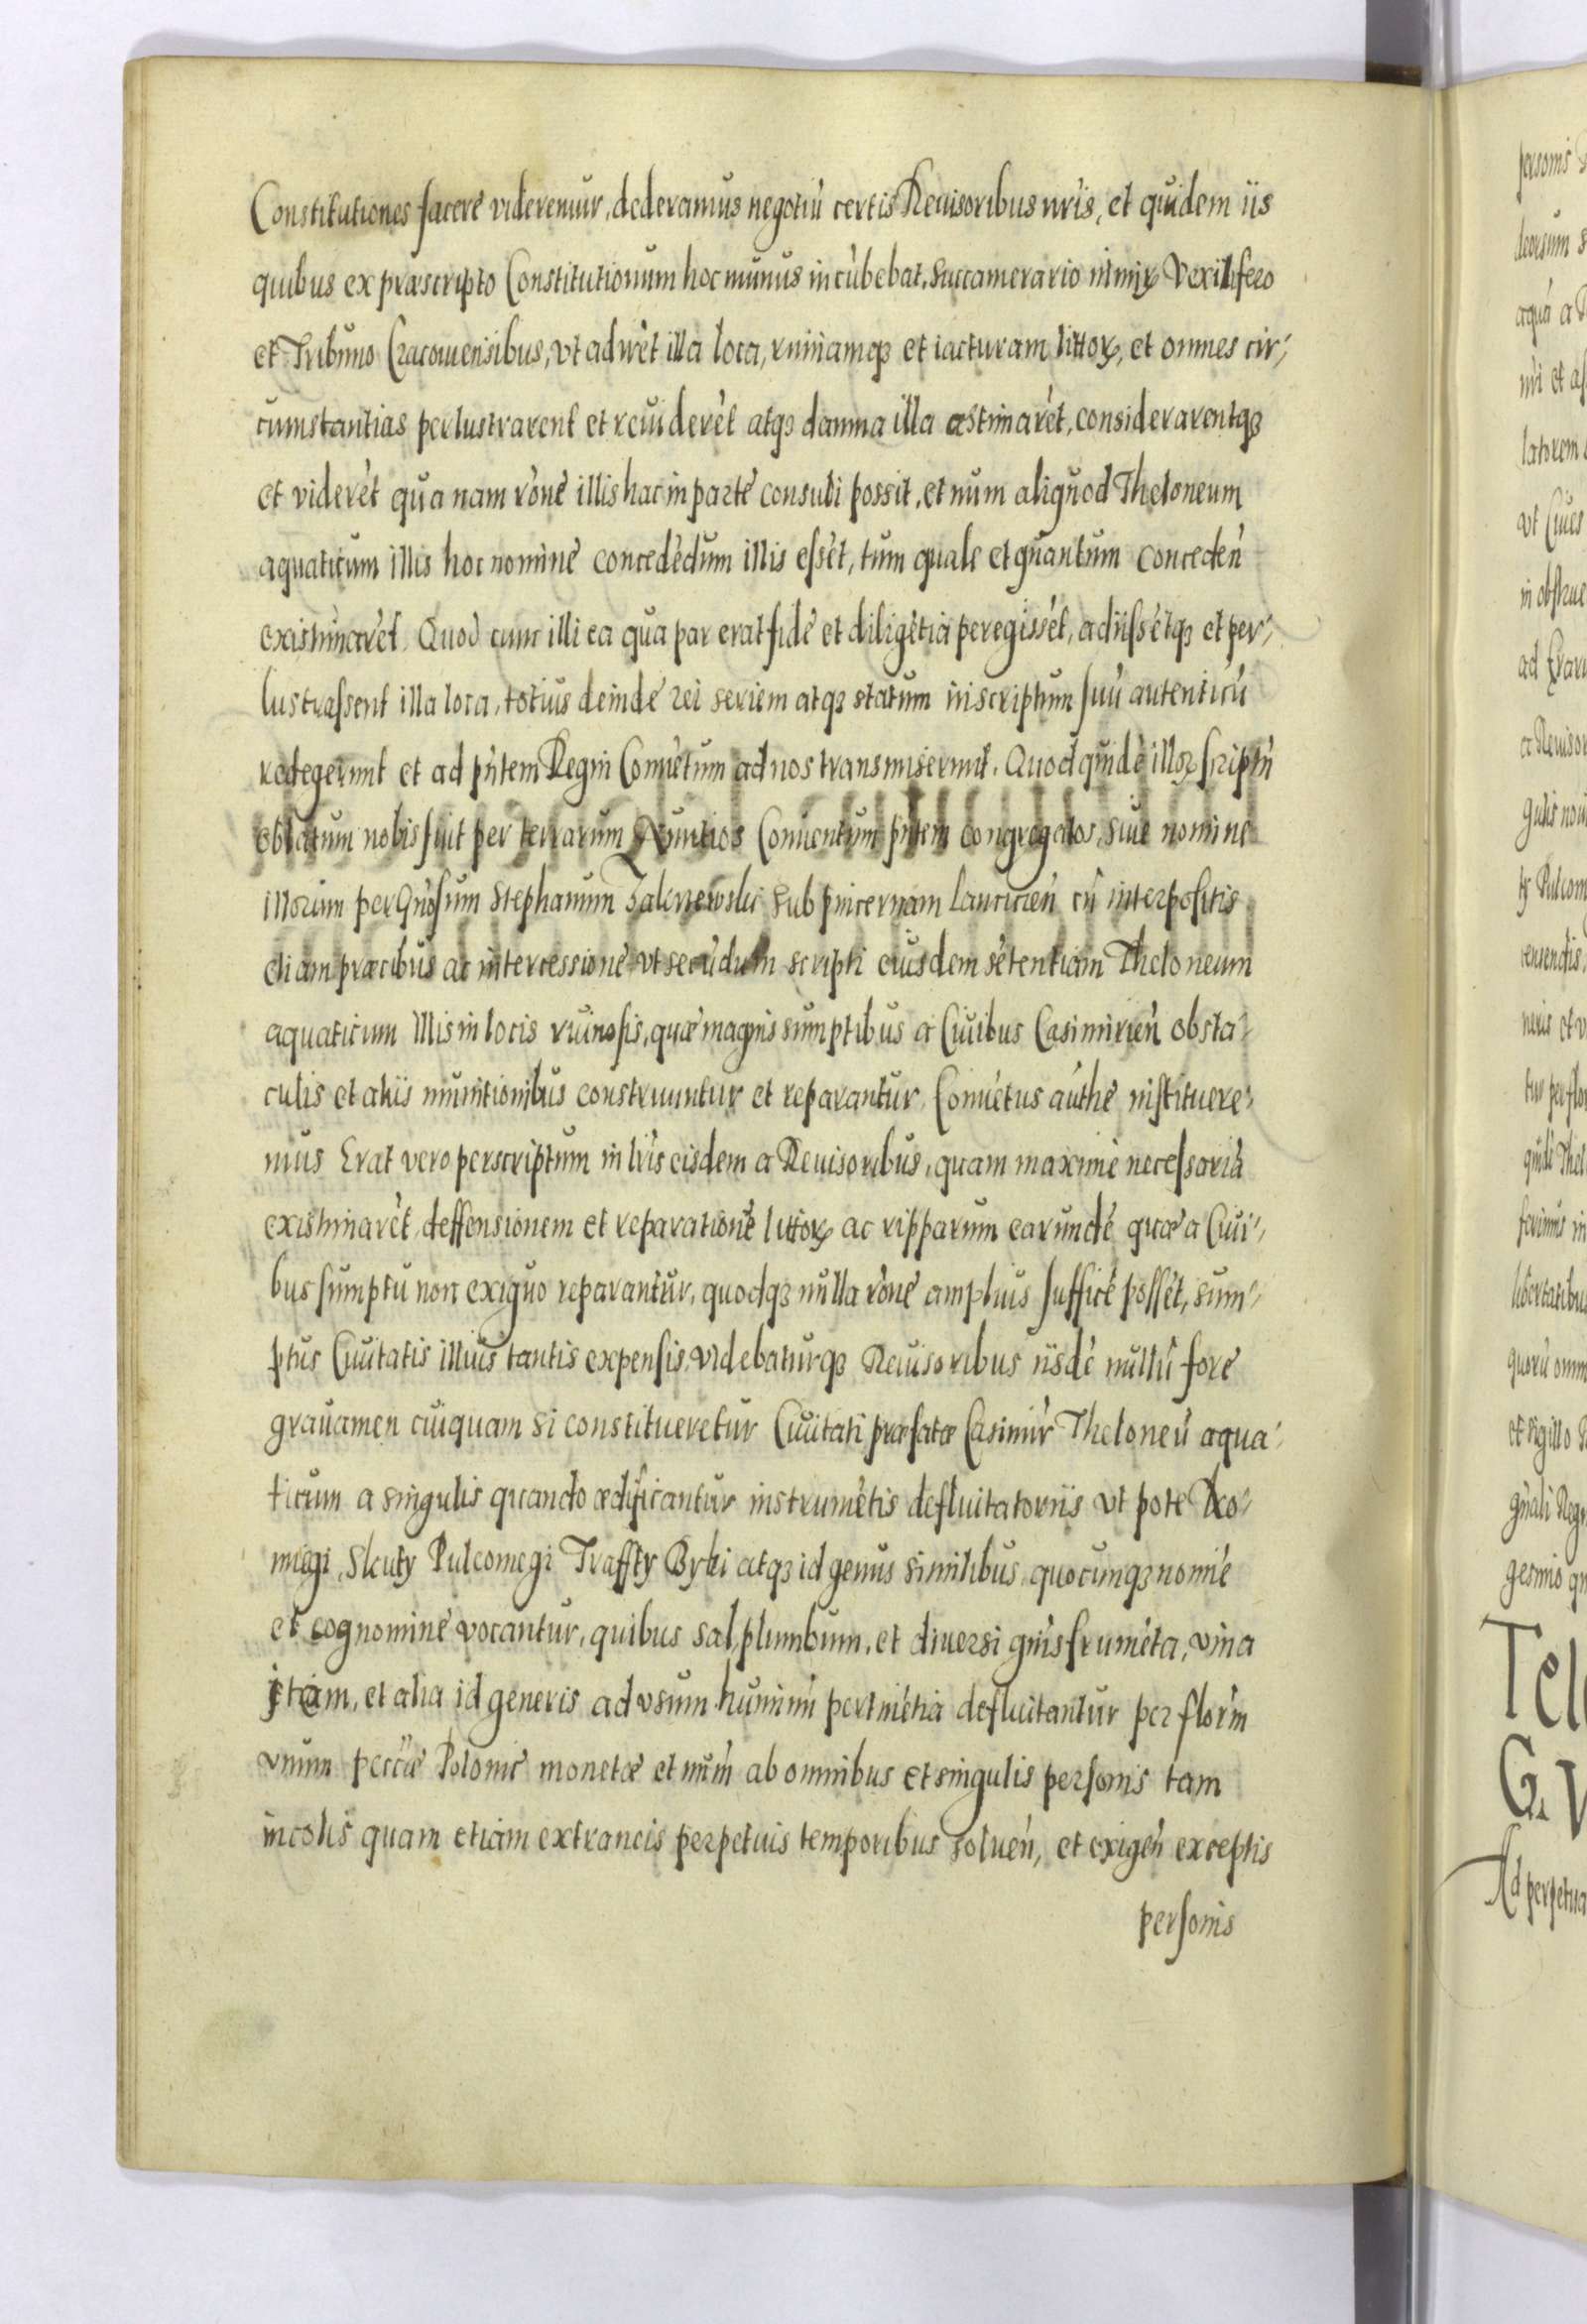 Constitutiones facere videremur, dederamus negotiũ certis Reuisoribus nr̃is, et quidem iis
quibus ex præscripto Constitutionum hoc munus incũbebat, Succamerario nimiꝝ Vexillifero
et Tribuno Cracouiensibus, vt adirẽt illa loca, ruinamqꝫ et iacturam littoꝝ, et omnes cir-
cumstantias perlustrarent et reuiderẽt atqꝫ damna illa æstimarẽt, considerarentqꝫ
et viderẽt qua nam rõne illis hac in parte consuli possit, et num aliquod Theloneum
aquaticum illis hoc nomine concedẽdum illis essẽt, tum quale et quantum conceden̄
existimarẽt. Quod cum illi ea qua par erat fide et diligẽtia peregissẽt, adiissẽtqꝫ et per-
lustrassent illa loca, totius deinde rei seriem atqꝫ statum in scriptum suũ autenticũ
redegerunt et ad pñtem Regni Conuẽtum ad nos transmiserunt. Quod quidẽ illoꝝ scriptũ
oblatum nobis fuit per terrarum Nuntios Conuentum pñtem congregatos, siue nomine
illorum per Gñosum Stephanum subpincernam Lancicień cũ interpositis
etiam præcibus ac intercessione vt secũdum scripti eiusdem sẽtentiam Theloneum
aquaticum illis in locis ruinosis, quæ magnis sumptibus a Ciuibus Casimirień obsta-
culis et aliis munitionibus construuntur et reparantur, Conuẽtus authẽ instituere-
mus Erat vero perscriptum in lr̃is eisdem a Reuisoribus, quam maxime necessariã
existimarẽt, deffensionem et reparationẽ littoꝝ ac ripparum earundẽ quæ a Ciui-
bus sumptu non exiguo reparantur, quodqꝫ nulla rõne amplius sufficẽ possẽt, sum-
ptus Ciuitatis illius tantis expensis, videbaturqꝫ Reuisoribus iisdẽ nullũ fore
grauamen cuiquam si constitueretur Ciuitati præfatæ Casimir̃ Theloneũ aqua-
ticum a singulis quando ædificantur instrumẽtis defluitatoriis vt pote Ko-
miegi, Skuty Pulcomegi Traffty Byki atqꝫ id genus similibus quocunqꝫ nomiẽ
et cognomine vocantur, quibus sal, plumbum, et diuersi gñis frumẽta, vina
etiam, et alia id generis ad vsum humanũ pertinẽtia defluitantur per florin̄
vnum peccũæ Polonic̃ monetæ et num̃ ab omnibus et singulis personis tam
incolis quam etiam extraneis perpetuis temporibus soluen̄, et exigen̄ exceptis
personis